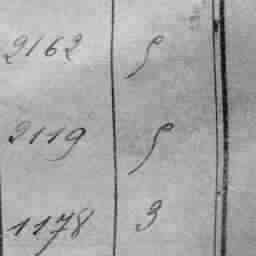 2162 5
2119 5
1178 3